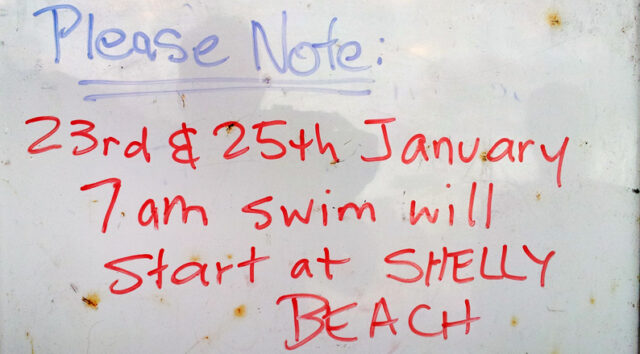 Please Note:
23rd & 25th January
7am swim will
start at SHELLY
BEACH